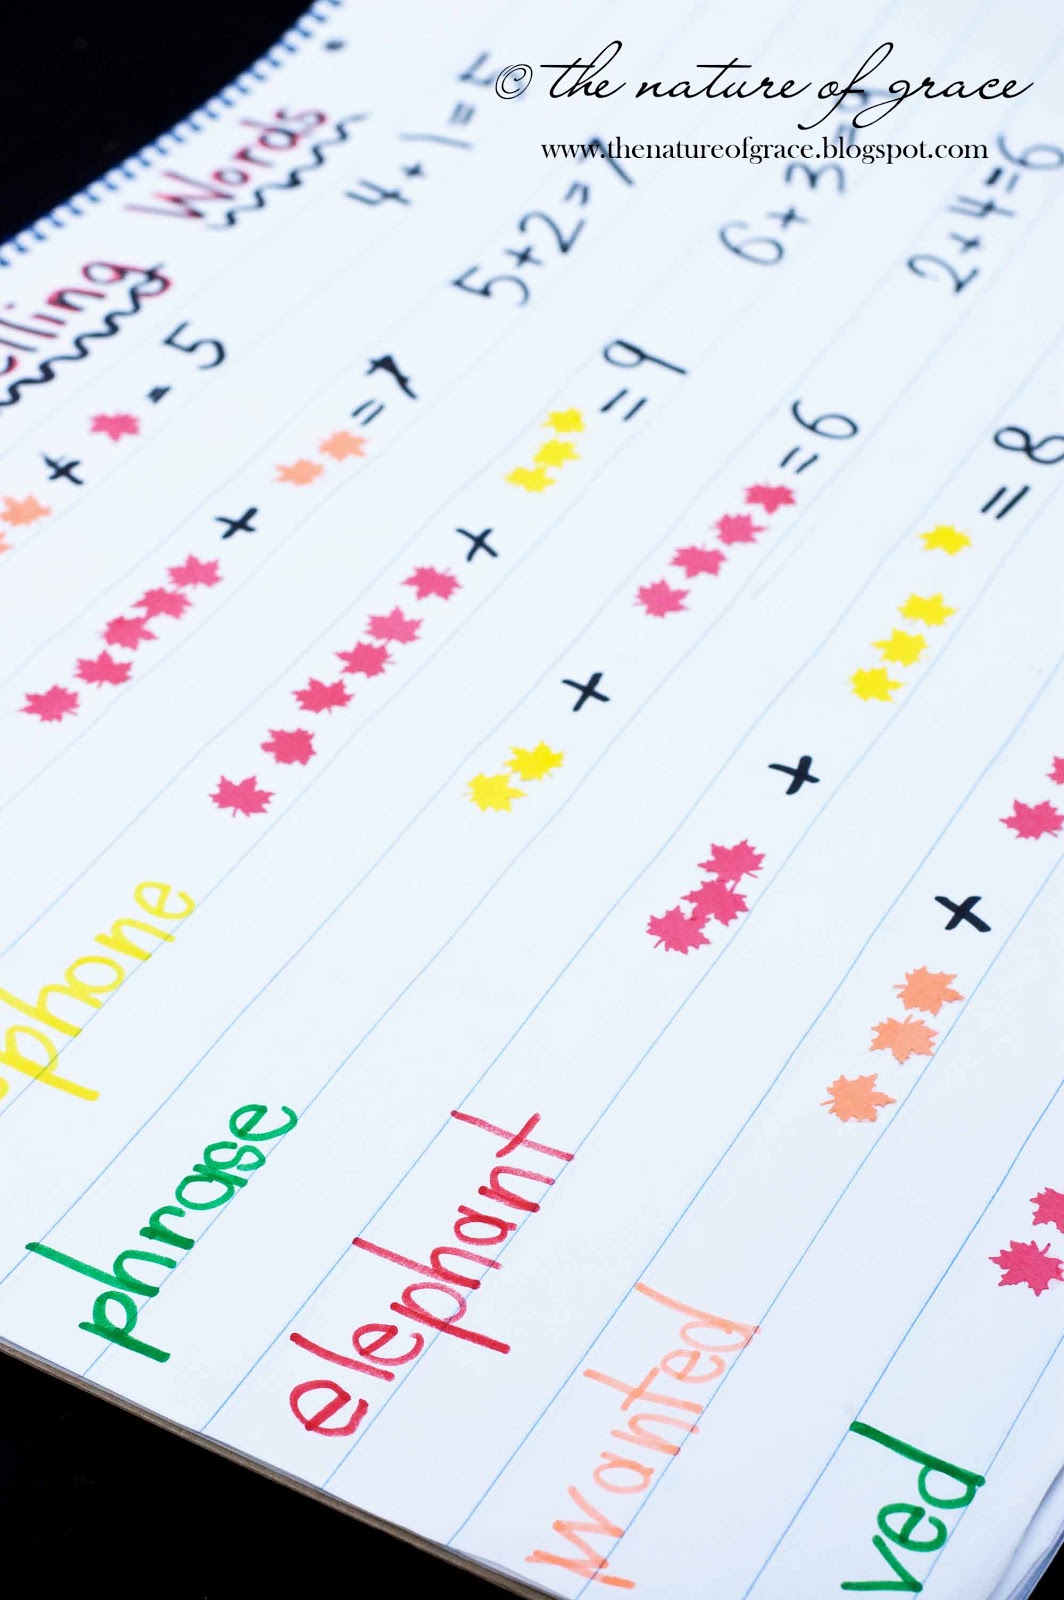 © the nature of grace
www.thenatureofgrace.blogspot.com
elling Words
+ = 5 4+1=5
+ = 7 5+2=7
phone + = 9 6+3=9
phrase + = 6 2+4=6
elephant + = 8
wanted +
ved